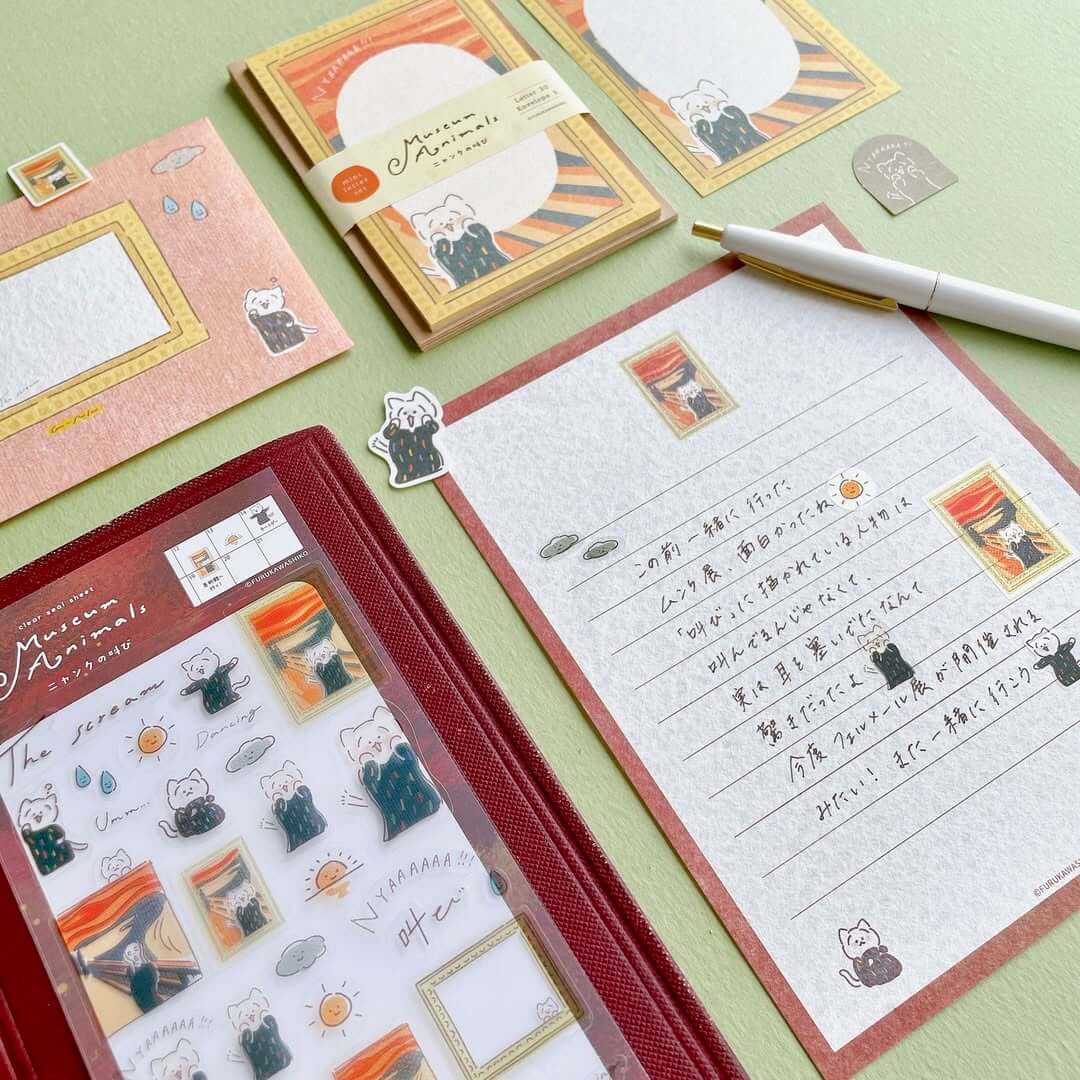 NYAAAAA!!!
Museum
Animals
ニャンクの叫び
mini
letter
set
Letter 20
NYAAAAA!!
clear seal sheet
Museum
Animals
ニャンクの叫び
12
13
14
19
20
21
©FURUKAWASHIKO
The scream
Dancing
Umm...
NYAAAAAA!!!
叫び
NYAAAAAA!!!
この前一緒に行った
ムンク展、面白かったね
「叫び」に描かれている人物は
叫んでるんじゃなくて、
実は耳を塞いでたなんて
驚きだったよ
今度フェルメール展が開催される
みたい！また一緒に行こう
©FURUKAWASHIKO